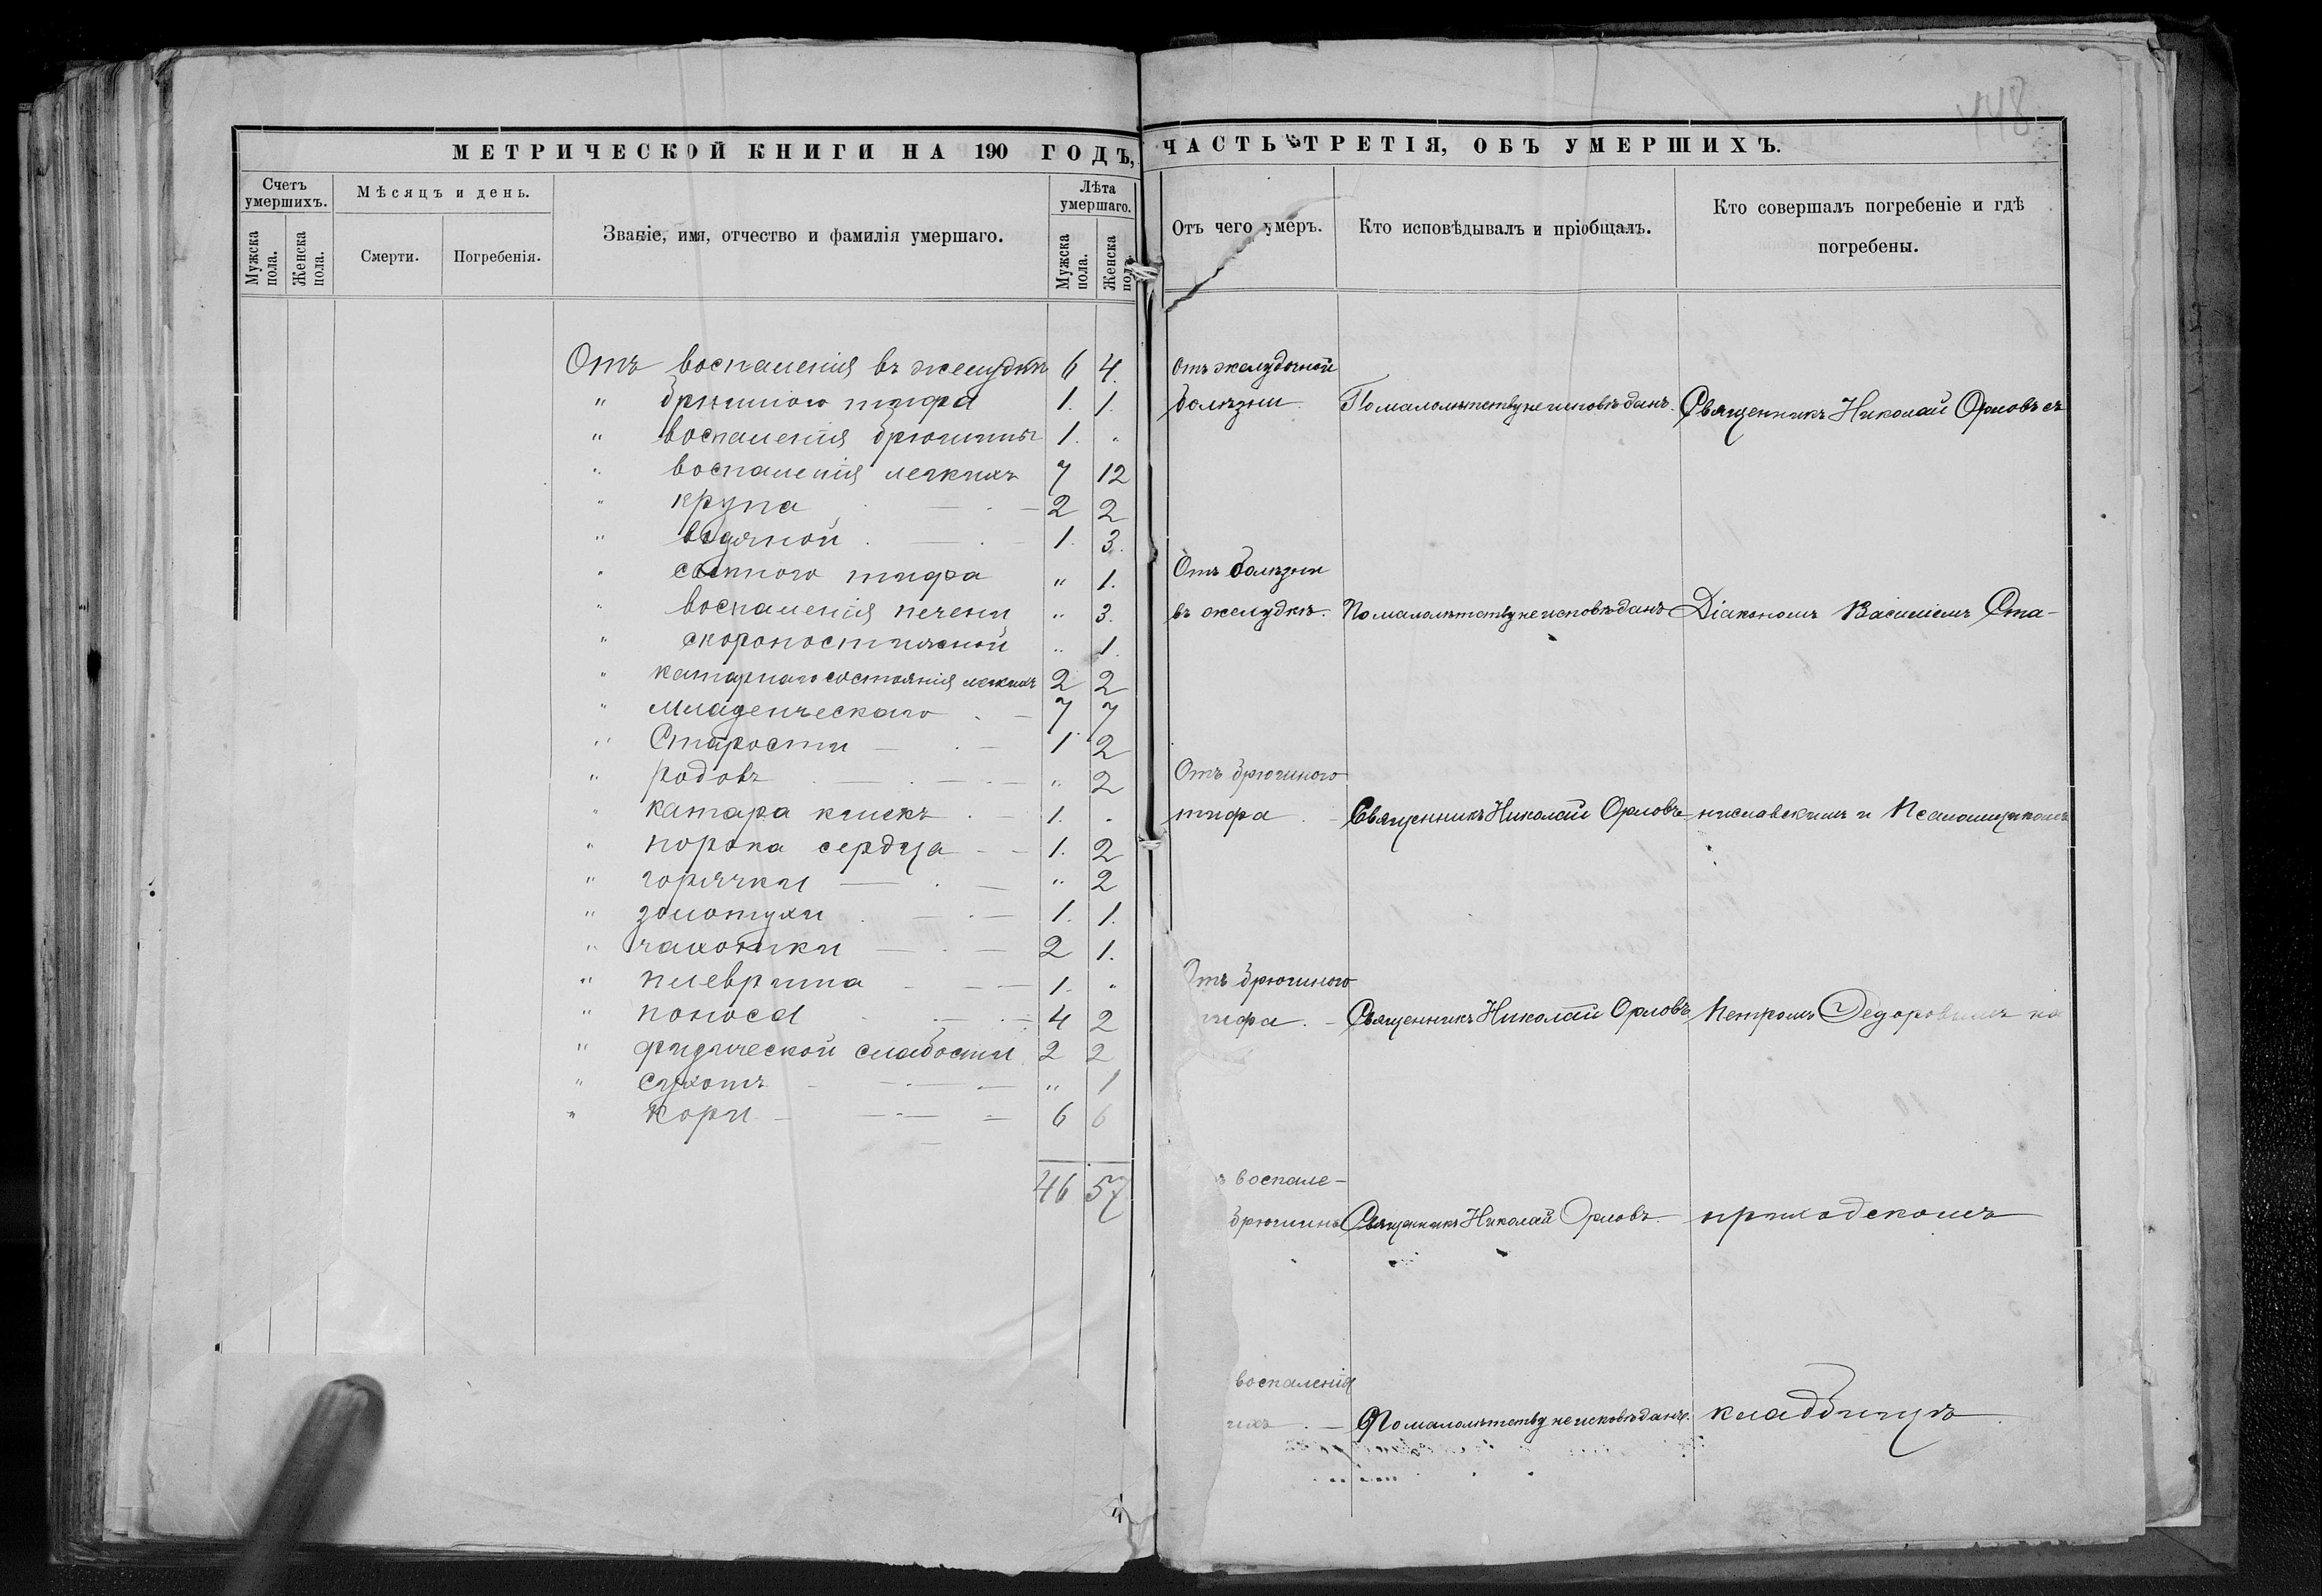 148
МЕТРИЧЕСКОЙ КНИГИ НА 190 ГОДЪ,
Счетъ умершихъ.
Мужска пола.
Женска пола.
Мѣсяцъ и день.
Смерти.
Погребенія.
Званіе, имя, отчество и фамилія умершаго.
Лѣта умершаго.
Мужска пола.
Женска пола.
Отъ воспаленія въ желудкѣ 6 4.
" брюшного тифа 1. 1.
" воспаленія брюшины 1. "
" воспаленія легкихъ 7 12
" крупа 2 2
" водяной 1. 3.
" сыпного тифа " 1.
" воспаленія печени " 3.
" скоропостижной " 1.
" катарнаго состоянія легкихъ 2 2
" Младенческаго 7 7
" Старости 1 2
" родовъ " 2
" катара кишекъ 1. "
" порока сердца 1. 2
" горячки " 2
" золотухи 1. 1.
" чахотки 2 1.
" плеврита 1. "
" поноса 4 2
" физической слабости 2 2
" Сухотъ " 1
" Кори 6 6
46 57
ЧАСТЬ ТРЕТІЯ, ОБЪ УМЕРШИХЪ.
Отъ чего умеръ.
Кто исповѣдывалъ и пріобщалъ.
Кто совершалъ погребеніе и гдѣ погребены.
Отъ желудочной
болѣзни. По малолѣтству не исповѣданъ. Священникъ Николай Орловъ съ
Отъ болѣзни
въ желудкѣ. По малолѣтству не исповѣданъ Діакономъ Василіемъ Ста-
Отъ брюшного
тифа. Священникъ Николай Орловъ ниславскимъ и Псаломщикомъ
Отъ брюшного
тифа. Священникъ Николай Орловъ Петромъ Федоровымъ на
воспале-
брюшины Священникъ Николай Орловъ. приходскомъ
воспаленія
ихъ. По малолѣтству не исповѣданъ. кладбищѣ